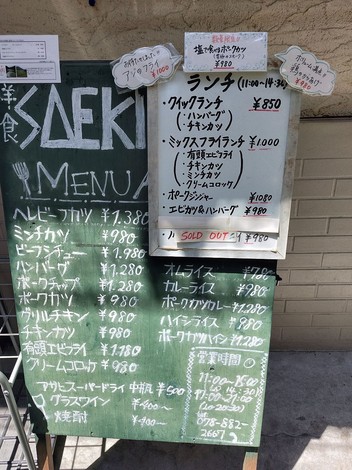 数量限定
塩で食べるポークカツ
¥980
アジのフライ
¥1000
洋食
SAEKI
MENU
ランチ (11:00~14:30)
・クイックランチ ¥850
(・ハンバーグ)
(・チキンカツ)
・ミックスフライランチ ¥1000
・有頭エビフライ
・チキンカツ
・ミンチカツ
・クリームコロッケ
・ポークジンジャー ¥1080
・エビカツ&ハンバーグ ¥980
SOLD OUT ¥980
ヘレビーフカツ ¥1.380
ミンチカツ ¥980
ビーフシチュー ¥1.980
ハンバーグ ¥1.280
ポークチャップ ¥1.280
ポークカツ ¥980
グリルチキン ¥980
チキンカツ ¥980
有頭エビフライ ¥1.180
クリームコロッケ ¥980
オムライス ¥780
カレーライス ¥980
ポークカツカレー ¥1.280
ハイシライス ¥980
ポークカツハイシ ¥1.280
アサヒスーパードライ 中瓶 ¥500
グラスワイン ¥400~
焼酎 ¥400~
営業時間
11:00~15:00
17:00~21:00
(Lo 20:30)
078-882-
2667